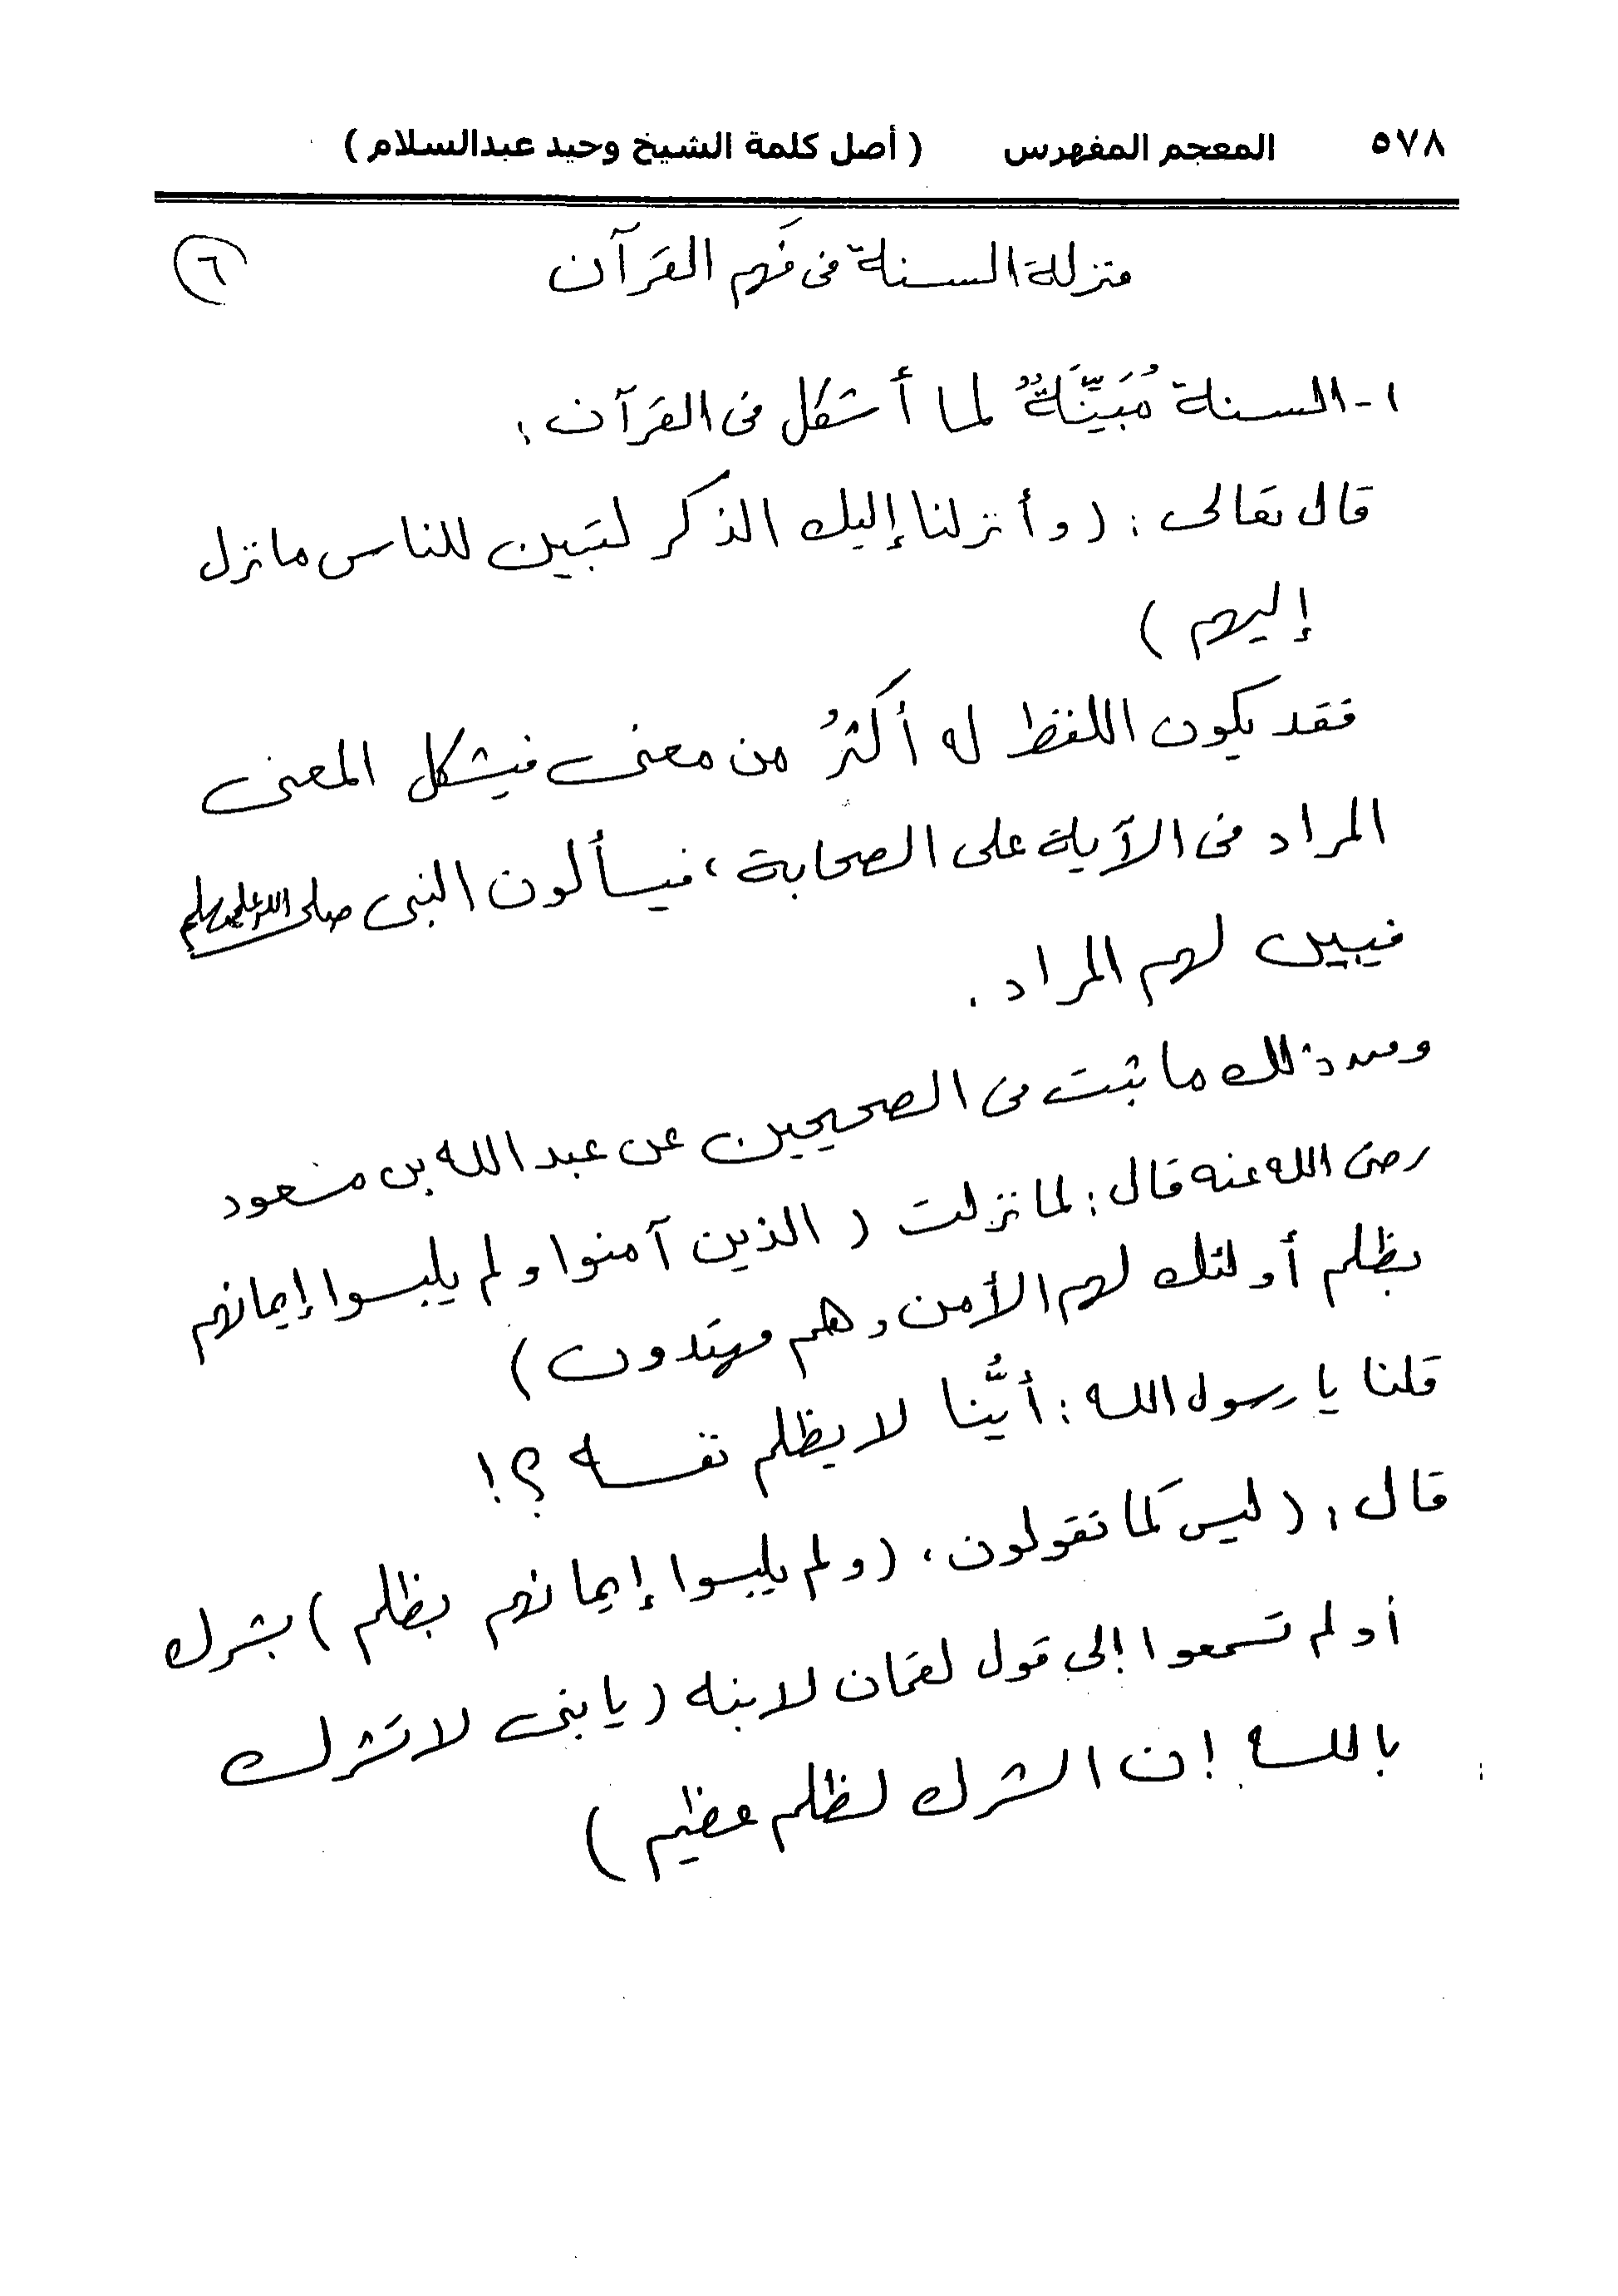 ٥٧٨ المعجم المفهرس ( أصل كلمة الشيخ وحيد عبدالسلام )
منزلة السنة فى فَهم القرآن ٦
١- السنة مُبَيِّنَةٌ لما أشكل فى القرآن :
قال تعالى : ( وأنزلنا إليك الذكر لتبين للناس ما نزل
إليهم )
فقد يكون اللفظ له أكثرُ من معنى فيشكل المعنى
المراد فى الآية على الصحابة ، فيسألون النبى صلى الله عليه وسلم
فيبين لهم المراد .
ومن ذلك ما ثبت فى الصحيحين عن عبد الله بن مسعود
رضى الله عنه قال : لما نزلت ( الذين آمنوا ولم يلبسوا إيمانهم
بظلم أولئك لهم الأمن وهم مهتدون )
قلنا يا رسول الله : أيُّنا لا يظلم نفسه ؟!
قال : ( ليس كما تقولون ، ( ولم يلبسوا إيمانهم بظلم ) بشرك
أولم تسمعوا إلى قول لقمان لابنه ( يا بنى لا تشرك
بالله إن الشرك لظلم عظيم )